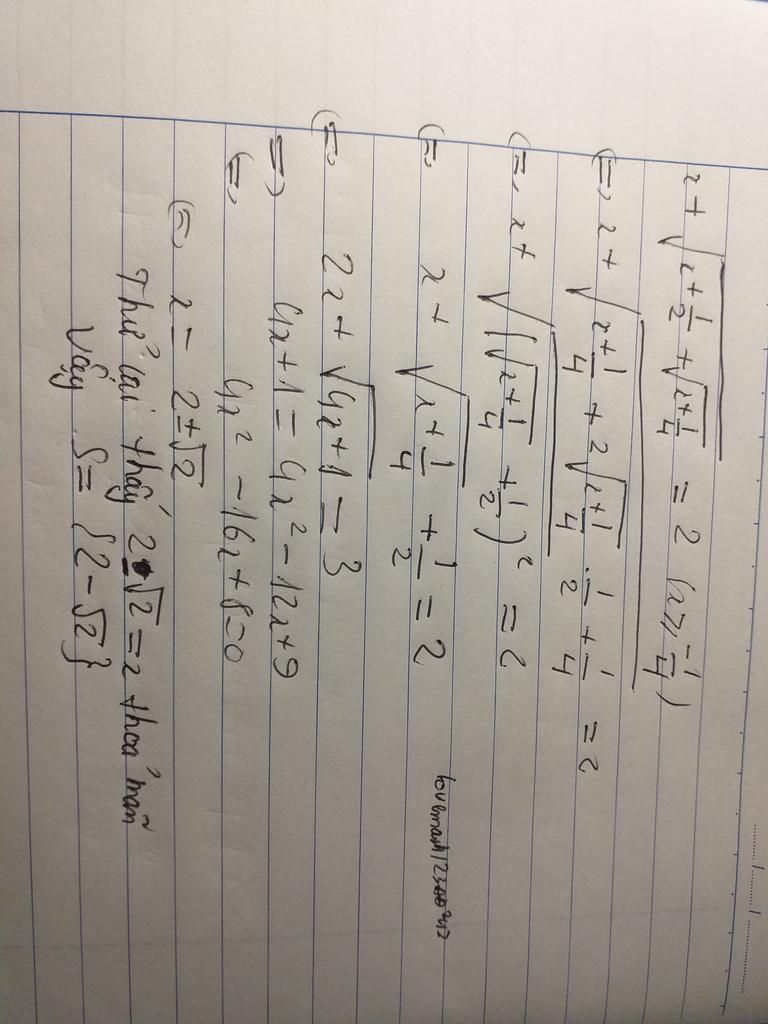 x + √(x + 1/2 + √(x + 1/4)) = 2 (x ≥ -1/4)
(=) x + √(x + 1/4 + 2√(x + 1/4) . 1/2 + 1/4) = 2
(=) x + √((√(x + 1/4) + 1/2)²) = 2
(=) x + √(x + 1/4) + 1/2 = 2
(=) 2x + √(4x + 1) = 3
=) 4x + 1 = 4x² - 12x + 9
(=) 4x² - 16x + 8 = 0
(=) x = 2 ± √2
Thử lại thấy 2 - √2 = x thoả mãn
Vậy S = {2 - √2}